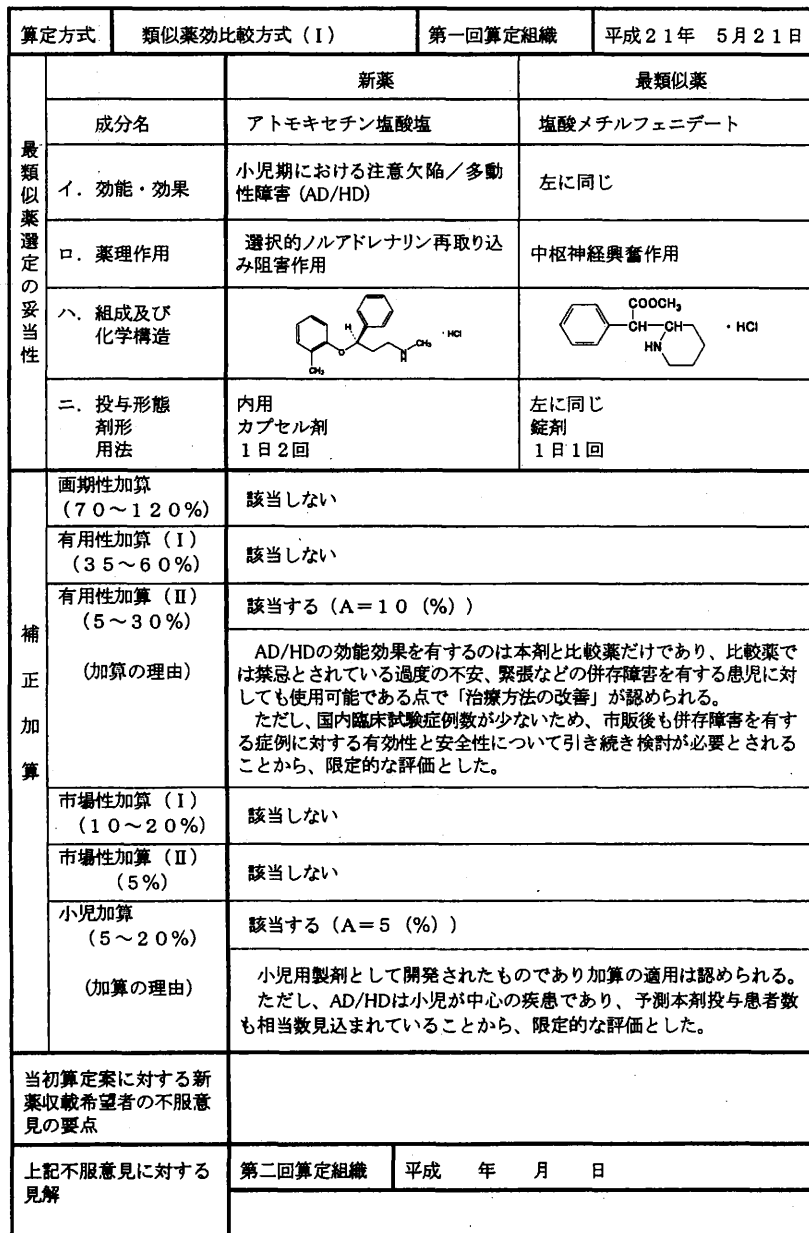 算定方式 類似薬効比較方式（Ⅰ） 第一回算定組織 平成２１年　５月２１日
最類似薬選定の妥当性
新薬 最類似薬
成分名 アトモキセチン塩酸塩 塩酸メチルフェニデート
イ．効能・効果 小児期における注意欠陥／多動性障害 (AD/HD) 左に同じ
ロ．薬理作用 選択的ノルアドレナリン再取り込み阻害作用 中枢神経興奮作用
ハ．組成及び
化学構造
H
O
CH₃
N
H
CH₃
・HCl
COOCH₃
CH
HN
・HCl
ニ．投与形態 内用 左に同じ
剤形 カプセル剤 錠剤
用法 １日２回 １日１回
補正加算
画期性加算
（７０～１２０％） 該当しない
有用性加算（Ⅰ）
（３５～６０％） 該当しない
有用性加算（Ⅱ）
（５～３０％） 該当する（Ａ＝１０（％））
（加算の理由）
AD/HDの効能効果を有するのは本剤と比較薬だけであり、比較薬で
は禁忌とされている過度の不安、緊張などの併存障害を有する患児に対
しても使用可能である点で「治療方法の改善」が認められる。
ただし、国内臨床試験症例数が少ないため、市販後も併存障害を有す
る症例に対する有効性と安全性について引き続き検討が必要とされる
ことから、限定的な評価とした。
市場性加算（Ⅰ）
（１０～２０％） 該当しない
市場性加算（Ⅱ）
（５％） 該当しない
小児加算
（５～２０％） 該当する（Ａ＝５（％））
（加算の理由）
小児用製剤として開発されたものであり加算の適用は認められる。
ただし、AD/HDは小児が中心の疾患であり、予測本剤投与患者数
も相当数見込まれていることから、限定的な評価とした。
当初算定案に対する新
薬収載希望者の不服意
見の要点
上記不服意見に対する
見解
第二回算定組織 平成　　年　　月　　日